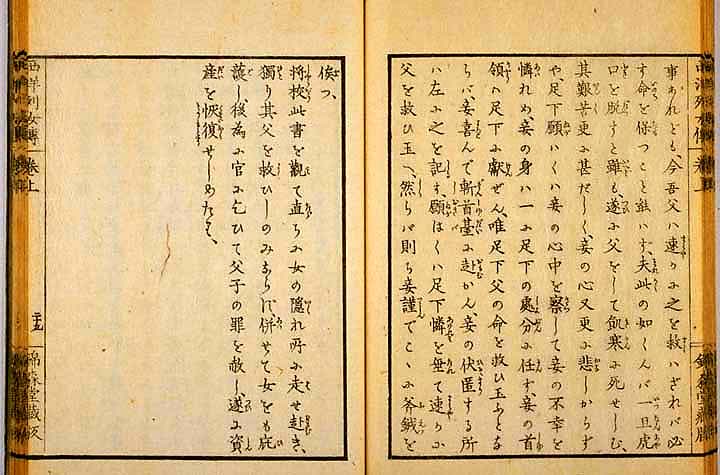 事あれども、今吾父ハ速かに之を救ハざれバ必
ず命を保つこと能ハず、夫此の如くんバ一旦虎
口を脱すと雖も、遂に父をして飢寒に死せしむ、
其艱苦更に甚だしく、妾の心又更に悲しからず
や、足下願ハくハ妾の心中を察して妾の不幸を
憐れめ、妾の身ハ一に足下の處分に任す、妾の首
領ハ足下に獻ぜん、唯足下父の命を救ひ玉ふとな
らバ、妾喜んで斬首臺に赴かん、妾の伏匿する所
ハ左に之を記す、願はくハ足下憐を垂て速かに
父を救ひ玉へ、然らバ則ち妾謹でこゝに斧鉞を
俟つ、
将校此書を觀て直ちに女の隠れ所に走せ赴き、
獨り其父を救ひしのみならず、併せて女をも庇
護し、後為に官に乞ひて父子の罪を赦し、遂に資
産を恢復せしめたり、
西洋列女傳 巻上
錦森堂蔵版